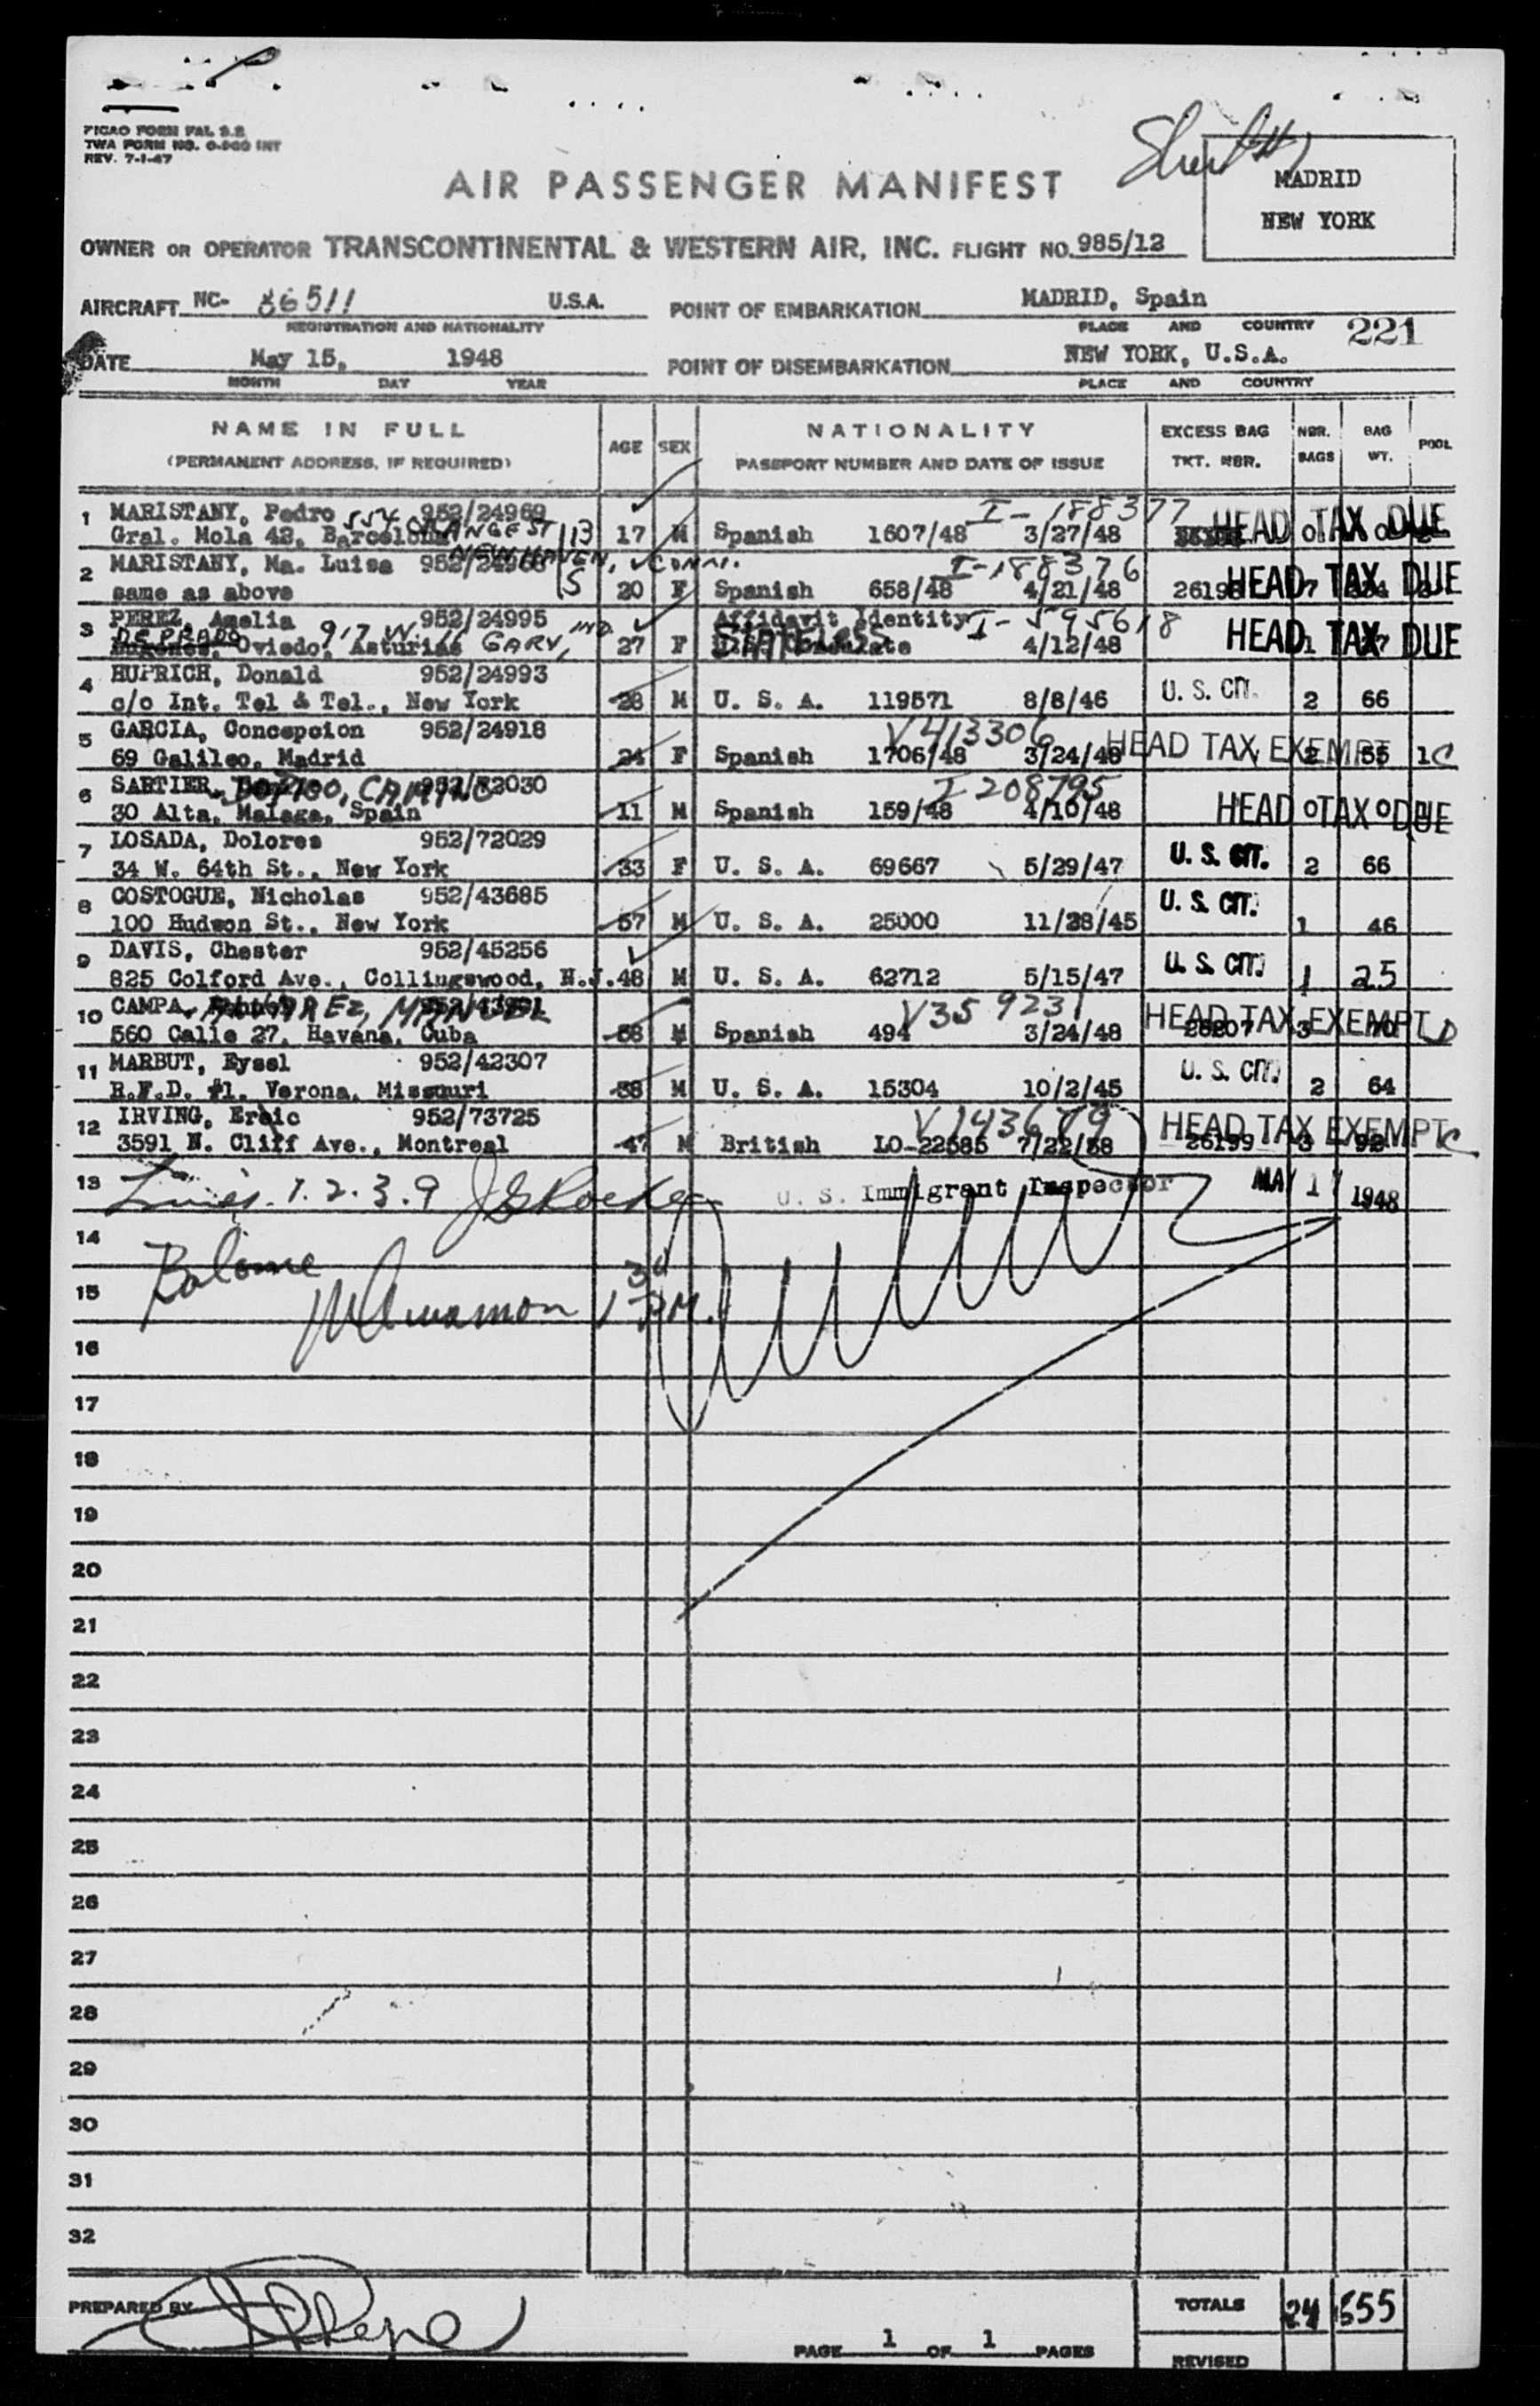 PICAO FORM FAL 2.2
TWA FORM NO. O-900 INT
REV. 7-1-47
MADRID
NEW YORK
AIR PASSENGER MANIFEST
OWNER OR OPERATOR TRANSCONTINENTAL & WESTERN AIR, INC. FLIGHT NO. 985/12
AIRCRAFT NC- 86511 U.S.A. POINT OF EMBARKATION MADRID, Spain
REGISTRATION AND NATIONALITY PLACE AND COUNTRY 221
DATE May 15, 1948 POINT OF DISEMBARKATION NEW YORK, U.S.A.
MONTH DAY YEAR PLACE AND COUNTRY
NAME IN FULL AGE SEX NATIONALITY EXCESS BAG NBR. BAG POOL
(PERMANENT ADDRESS, IF REQUIRED) PASSPORT NUMBER AND DATE OF ISSUE TKT. NBR. BAGS WT.
1 MARISTANY, Pedro 554 952/24969 I-188377
Gral. Mola 42, Barcelona ORANGE ST 13 17 M Spanish 1607/48 3/27/48 HEAD TAX DUE
2 MARISTANY, Ma. Luisa NEW HAVEN, CONN. I-188376
same as above 5 20 F Spanish 658/48 4/21/48 HEAD TAX DUE
3 PEREZ, Amelia 952/24995 Affidavit Identity I-595618
DE PRADO Oviedo, Asturias 917 W. 16 GARY, IND 27 F STATELESS 4/12/48 HEAD TAX DUE
4 HUPRICH, Donald 952/24993
c/o Int. Tel & Tel., New York 28 M U. S. A. 119571 8/8/46 U. S. CIT. 2 66
5 GARCIA, Concepcion 952/24918 V413306
69 Galileo, Madrid 24 F Spanish 1706/48 3/24/48 HEAD TAX EXEMPT 2 55 1C
6 SARTIER, CAMILO 952/72030 I 208795
30 Alta, Malaga, Spain 11 M Spanish 159/48 4/10/48 HEAD TAX DUE
7 LOSADA, Dolores 952/72029
34 W. 64th St., New York 33 F U. S. A. 69667 5/29/47 U. S. CIT. 2 66
8 COSTOGUE, Nicholas 952/43685
100 Hudson St., New York 57 M U. S. A. 25000 11/28/45 U. S. CIT. 1 46
9 DAVIS, Chester 952/45256
825 Colford Ave., Collingswood, N.J. 48 M U. S. A. 62712 5/15/47 U. S. CIT. 1 25
10 CAMPA ALVAREZ, MANUEL V359231
560 Calle 27, Havana, Cuba 58 M Spanish 494 3/24/48 HEAD TAX EXEMPT 26207 3 70 D
11 MARBUT, Eysel 952/42307
R.F.D. #1, Verona, Missouri 38 M U. S. A. 15304 10/2/45 U. S. CIT. 2 64
12 IRVING, Ereic 952/73725 V1436
3591 N. Cliff Ave., Montreal 47 M British LO-22585 7/22/38 HEAD TAX EXEMPT 26199 3 92 C
13 Lines 1. 2. 3. 9 U. S. Immigrant Inspector MAY 17 1948
14
Balance
15 1 30 P.M.
16
17
18
19
20
21
22
23
24
25
26
27
28
29
30
31
32
PREPARED BY TOTALS 24 555
PAGE 1 OF 1 PAGES REVISED